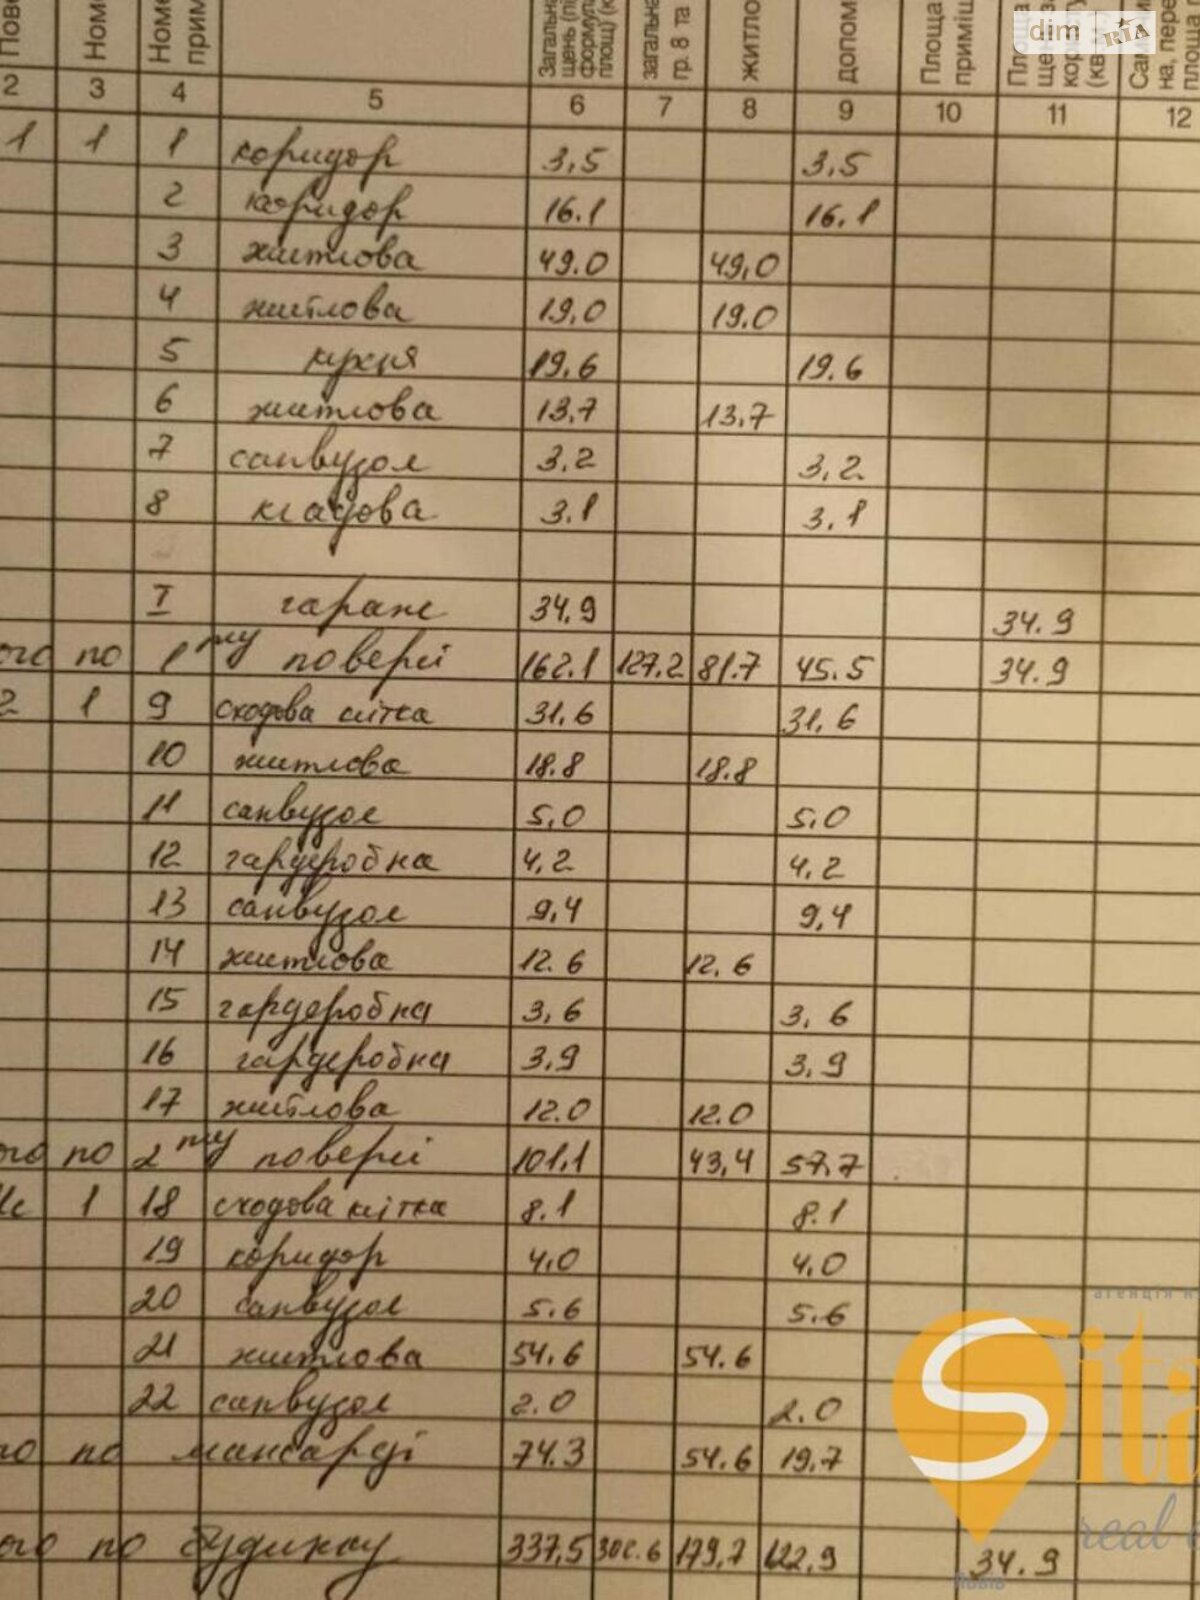 Пове
Номе
Номе
прим
Загальна
щень (пі
формула
площ) (к
загальна
гр. 8 та
житло
допом
Площа
приміщ
Площа
dim RIA
на, пере
площа
2 3 4 5 6 7 8 9 10 11 12
1 1 1 коридор 3,5 3,5
2 коридор 16.1 16.1
3 житлова 49.0 49,0
4 житлова 19,0 19.0
5 кухня 19.6 19.6
6 житлова 13,7 13.7
7 санвузол 3,2 3,2
8 кладова 3.1 3,1
I гараж 34.9 34.9
ого по 1му поверсі 162.1 127.2 81.7 45.5 34.9
2 1 9 сходова клітка 31,6 31,6
10 житлова 18.8 18.8
11 санвузол 5,0 5,0
12 гардеробна 4,2 4,2
13 санвузол 9,4 9,4
14 житлова 12.6 12.6
15 гардеробна 3,6 3,6
16 гардеробна 3.9 3.9
17 житлова 12.0 12.0
ого по 2му поверсі 101,1 43,4 57.7
1 18 сходова клітка 8.1 8.1
19 коридор 4,0 4.0
20 санвузол 5.6 5.6
21 житлова 54.6 54.6
22 санвузол 2.0 2.0
го по мансарді 74.3 54.6 19,7
ого по будинку 337,5 302.6 179,7 122,9 34.9
агенція н
Sita
real e
Львів